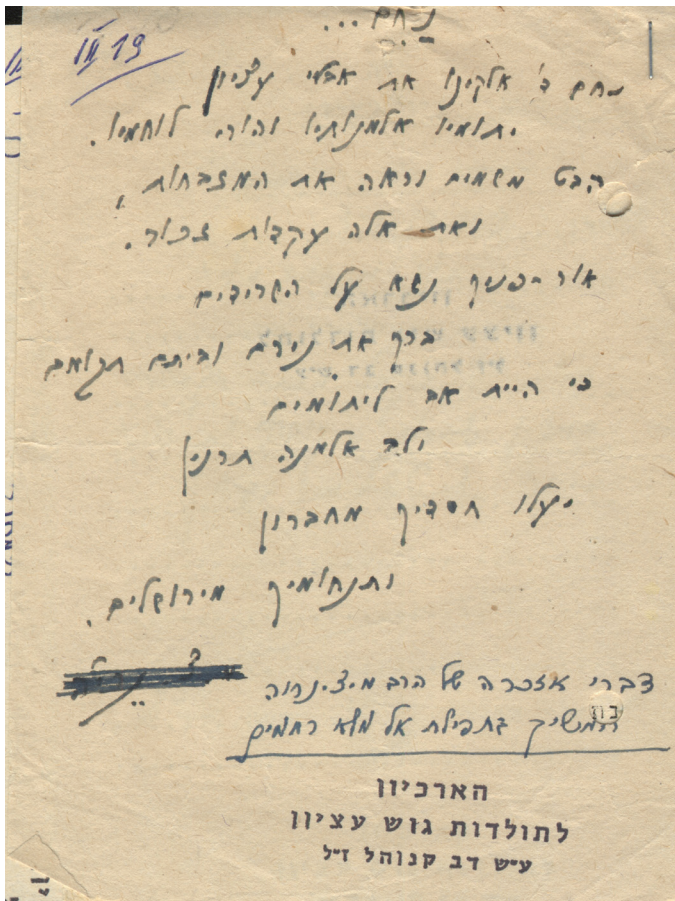 נחם ...
III 19
נחם ד' אלקינו את אבלי עציון
יתומיו אלמנותיו והורי לוחמיו.
הבט משמים וראה את המזבחות,
ואת אלה עקדות זכור.
אור-פניך נשא על השרידים
ברך את נירם וביתם תקומם
כי היית אב ליתומים
ולב אלמנה תרנין
יעלו חסדיך מחברון
ותנחומיך מירושלים.
דברי אזכרה של הרב
המשיך בתפילת אל מלא רחמים
הארכיון
לתולדות גוש עציון
ע״ש דב קנוהל ז״ל